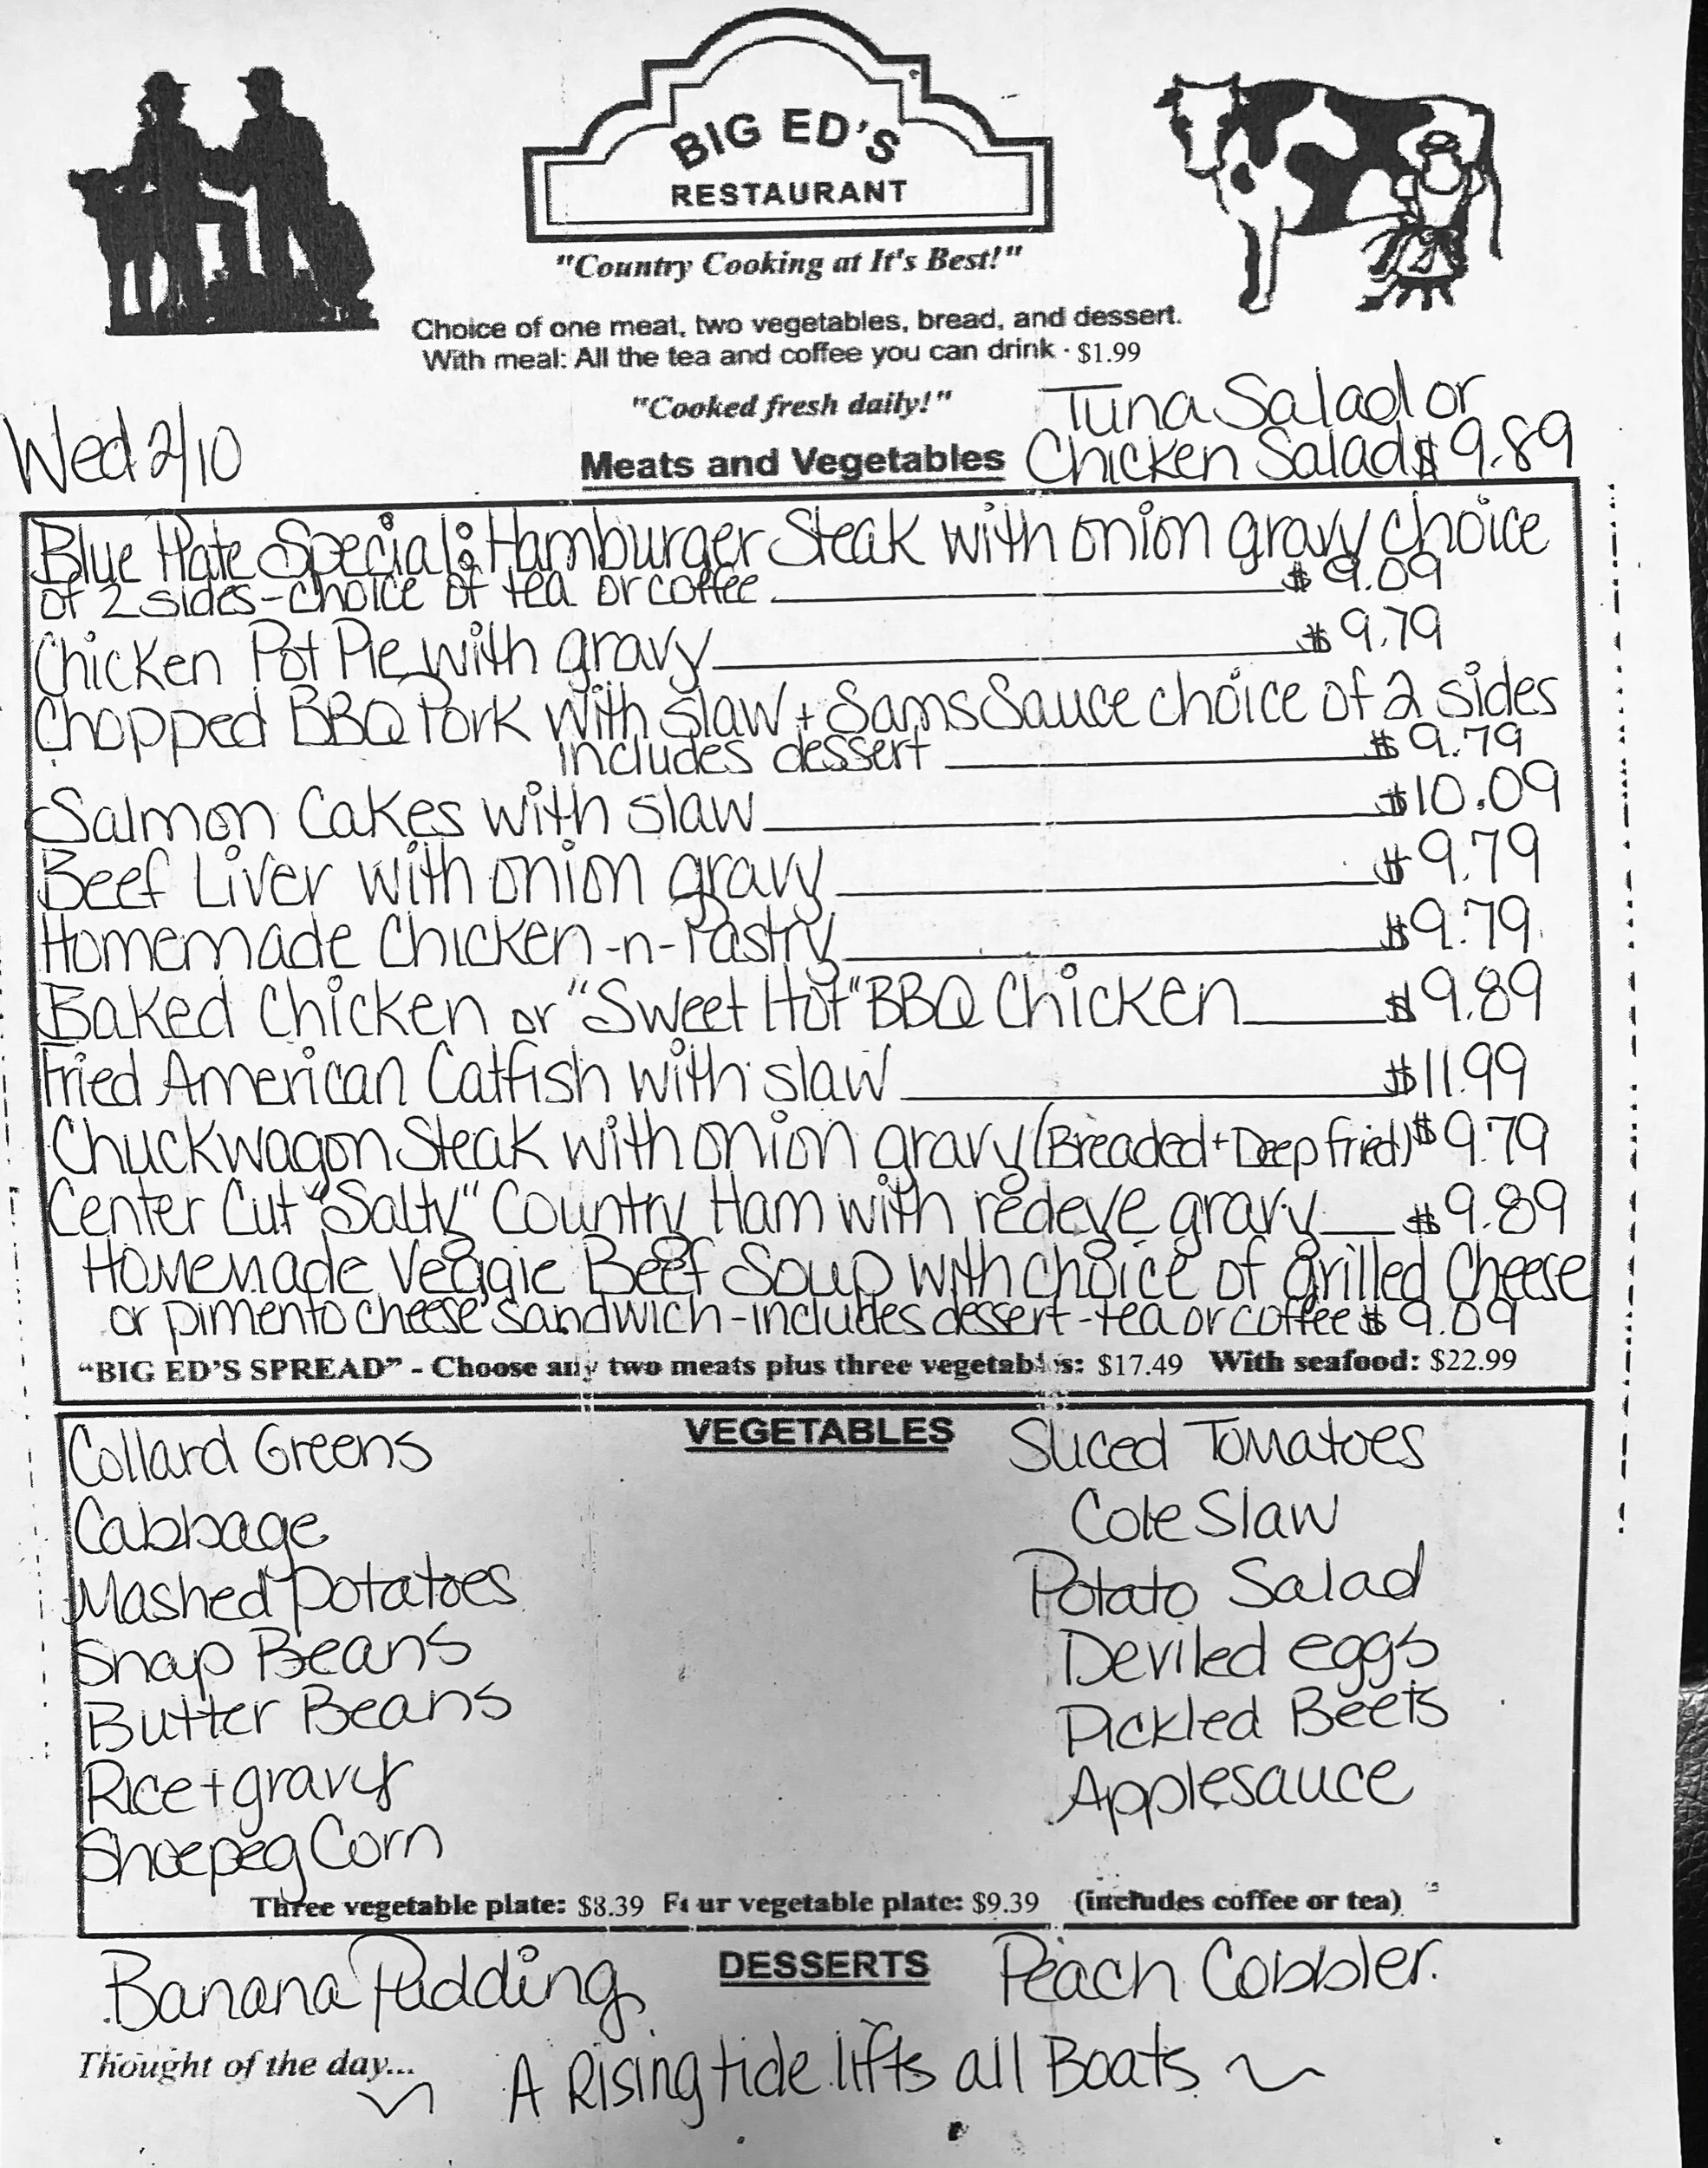 BIG ED'S
RESTAURANT
"Country Cooking at It's Best!"
Choice of one meat, two vegetables, bread, and dessert.
With meal: All the tea and coffee you can drink - $1.99
"Cooked fresh daily!"
Tuna Salad or
Wed 2/10
Meats and Vegetables
Chicken Salad $9.89
Blue Plate Special: Hamburger Steak with onion gravy choice
of 2 sides-choice of tea or coffee $9.09
Chicken Pot Pie with gravy $9.79
Chopped BBQ Pork with slaw + Sams Sauce choice of 2 sides
includes dessert $9.79
Salmon Cakes with slaw $10.09
Beef Liver with onion gravy $9.79
Homemade Chicken-n-Pastry $9.79
Baked Chicken or "Sweet Hot" BBQ Chicken $9.89
Fried American Catfish with slaw $11.99
Chuckwagon Steak with onion gravy (Breaded + Deep fried) $9.79
Center Cut "Salty" Country Ham with redeye gravy $9.89
Homemade Veggie Beef Soup with choice of grilled Cheese
or pimento cheese sandwich-includes dessert-tea or coffee $9.09
"BIG ED'S SPREAD" - Choose any two meats plus three vegetables: $17.49 With seafood: $22.99
VEGETABLES
Collard Greens
Cabbage
Mashed Potatoes
Snap Beans
Butter Beans
Rice + gravy
Shoepeg Corn
Sliced Tomatoes
Cole Slaw
Potato Salad
Deviled eggs
Pickled Beets
Applesauce
Three vegetable plate: $8.39 Four vegetable plate: $9.39 (includes coffee or tea)
DESSERTS
Banana Pudding
Peach Cobbler.
Thought of the day...
A Rising tide lifts all Boats